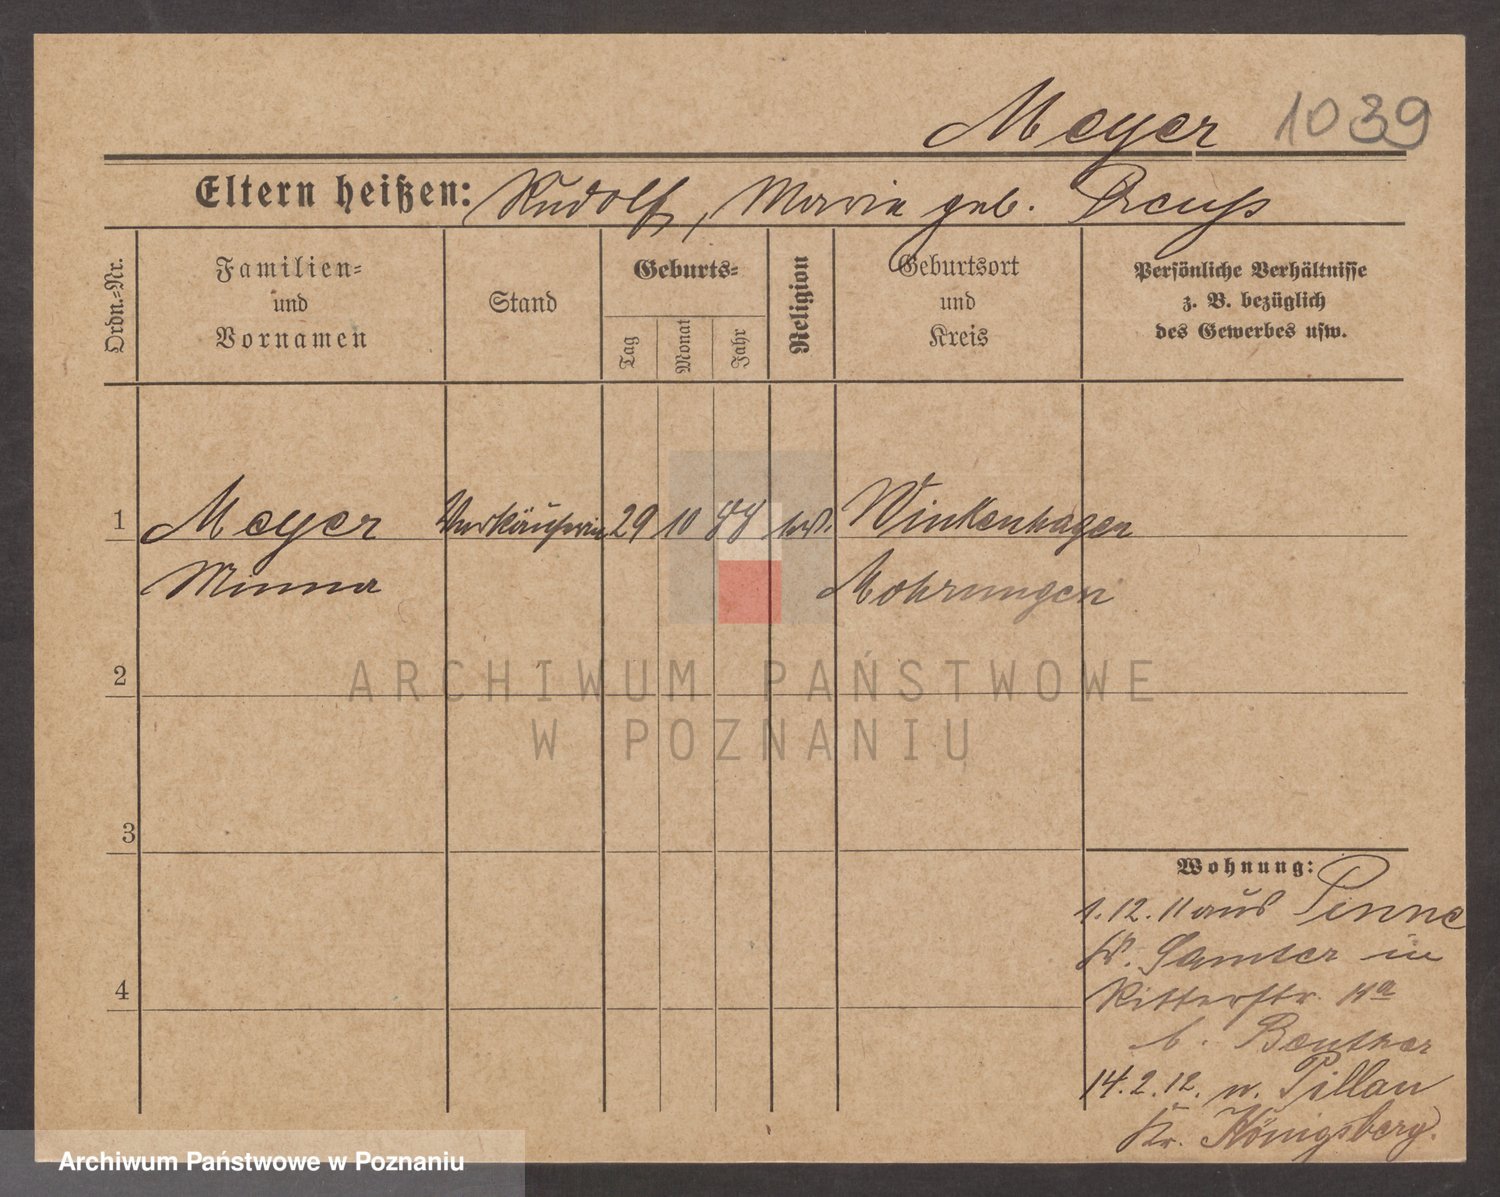 Meyer 1039
Eltern heißen: Rudolf, Maria geb. Preuß
Ordn.=Nr.
Familien=
und
Vornamen
Stand
Geburts=
Tag
Monat
Jahr
Religion
Geburtsort
und
Kreis
Persönliche Verhältnisse
z. B. bezüglich
des Gewerbes usw.
1 Meyer Verkäuferin 29 10 88 Winkenhagen
Minna Mohrungen
2
3
4
Wohnung:
1.12.11 aus Pinne
Kr. Samter in
Ritterstr.
b. Beuther
14.2.12. n. Pillau
Kr. Königsberg.
ARCHIWUM PAŃSTWOWE
W POZNANIU
Archiwum Państwowe w Poznaniu